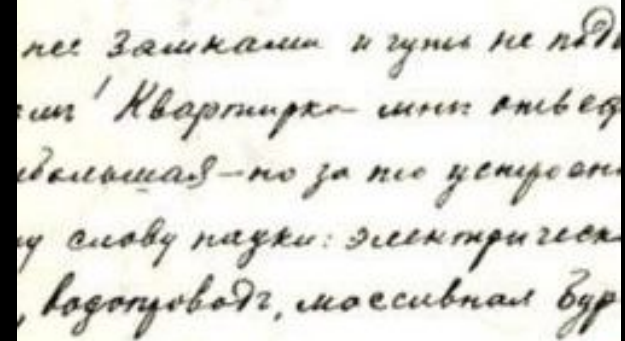 нее замками и чуть не подъ
! Квартирка мнѣ отвед
ебольшая – но за то устроен
у слову науки: электрическ
, водопроводъ, массивная бур